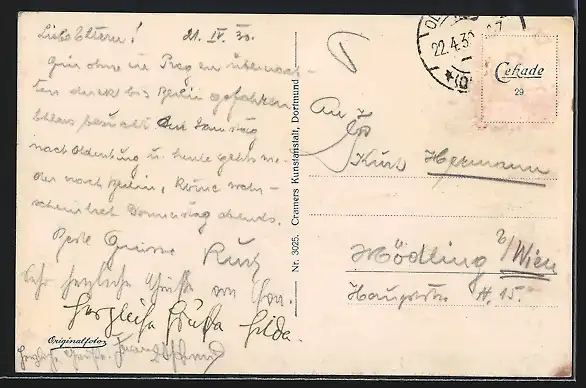 Liebe Eltern! 21. IV. 30.
Bin ohne in Prag zu übernach-
ten direkt bis Berlin gefahren
besucht. Am Samstag
nach Oldenburg u. heute gehts wie-
der nach Berlin, komme wahr-
scheinlich Donnerstag abends.
Beste Grüsse Kurt
Sehr herzliche Grüsse von
Herzliche Grüsse Hilda.
Herzliche Grüsse
Originalfoto
Nr. 3025. Cramers Kunstanstalt, Dortmund
22.4.30
Cekade
29
An
Kurt Hermann
Mödling b/Wien
Hauptstr. 15.